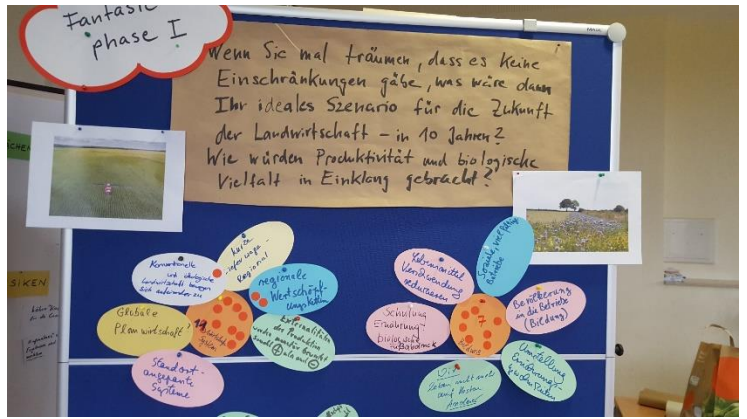 Fantasie
phase I
Wenn Sie mal träumen, dass es keine
Einschränkungen gäbe, was wäre dann
Ihr ideales Szenario für die Zukunft
der Landwirtschaft – in 10 Jahren?
Wie würden Produktivität und biologische
Vielfalt in Einklang gebracht?
SIKEN
Konventionelle
und ökologische
Landwirtschaft bewegen
sich aufeinander zu
Kurze
Regional
regionale
Wertschöpf-
ungsketten
Globale
Planwirtschaft?
Externalitäten
der Produktion
sowohl + als auch -
Standort-
angepasste
Systeme
Lebensmittel
Verschwendung
reduzieren
Soziale, vielfältige
Betriebe
Schulung
Ernährung-
biologischer
Fußabdruck
7
Bevölkerung
in die Betriebe
(Bildung)
Umstellung
Ernährungs-
gewohnheiten
Leben nicht mehr
auf Kosten
Anderer